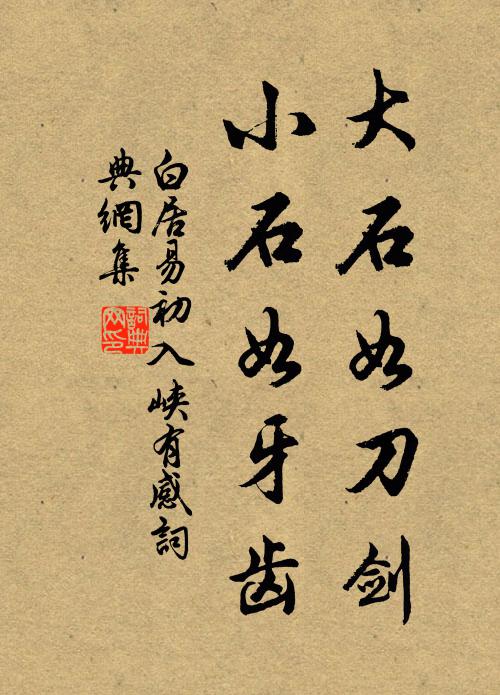 大石如刀剑
小石如牙齿
白居易初入峡有感詞
典網集
詞典
网印